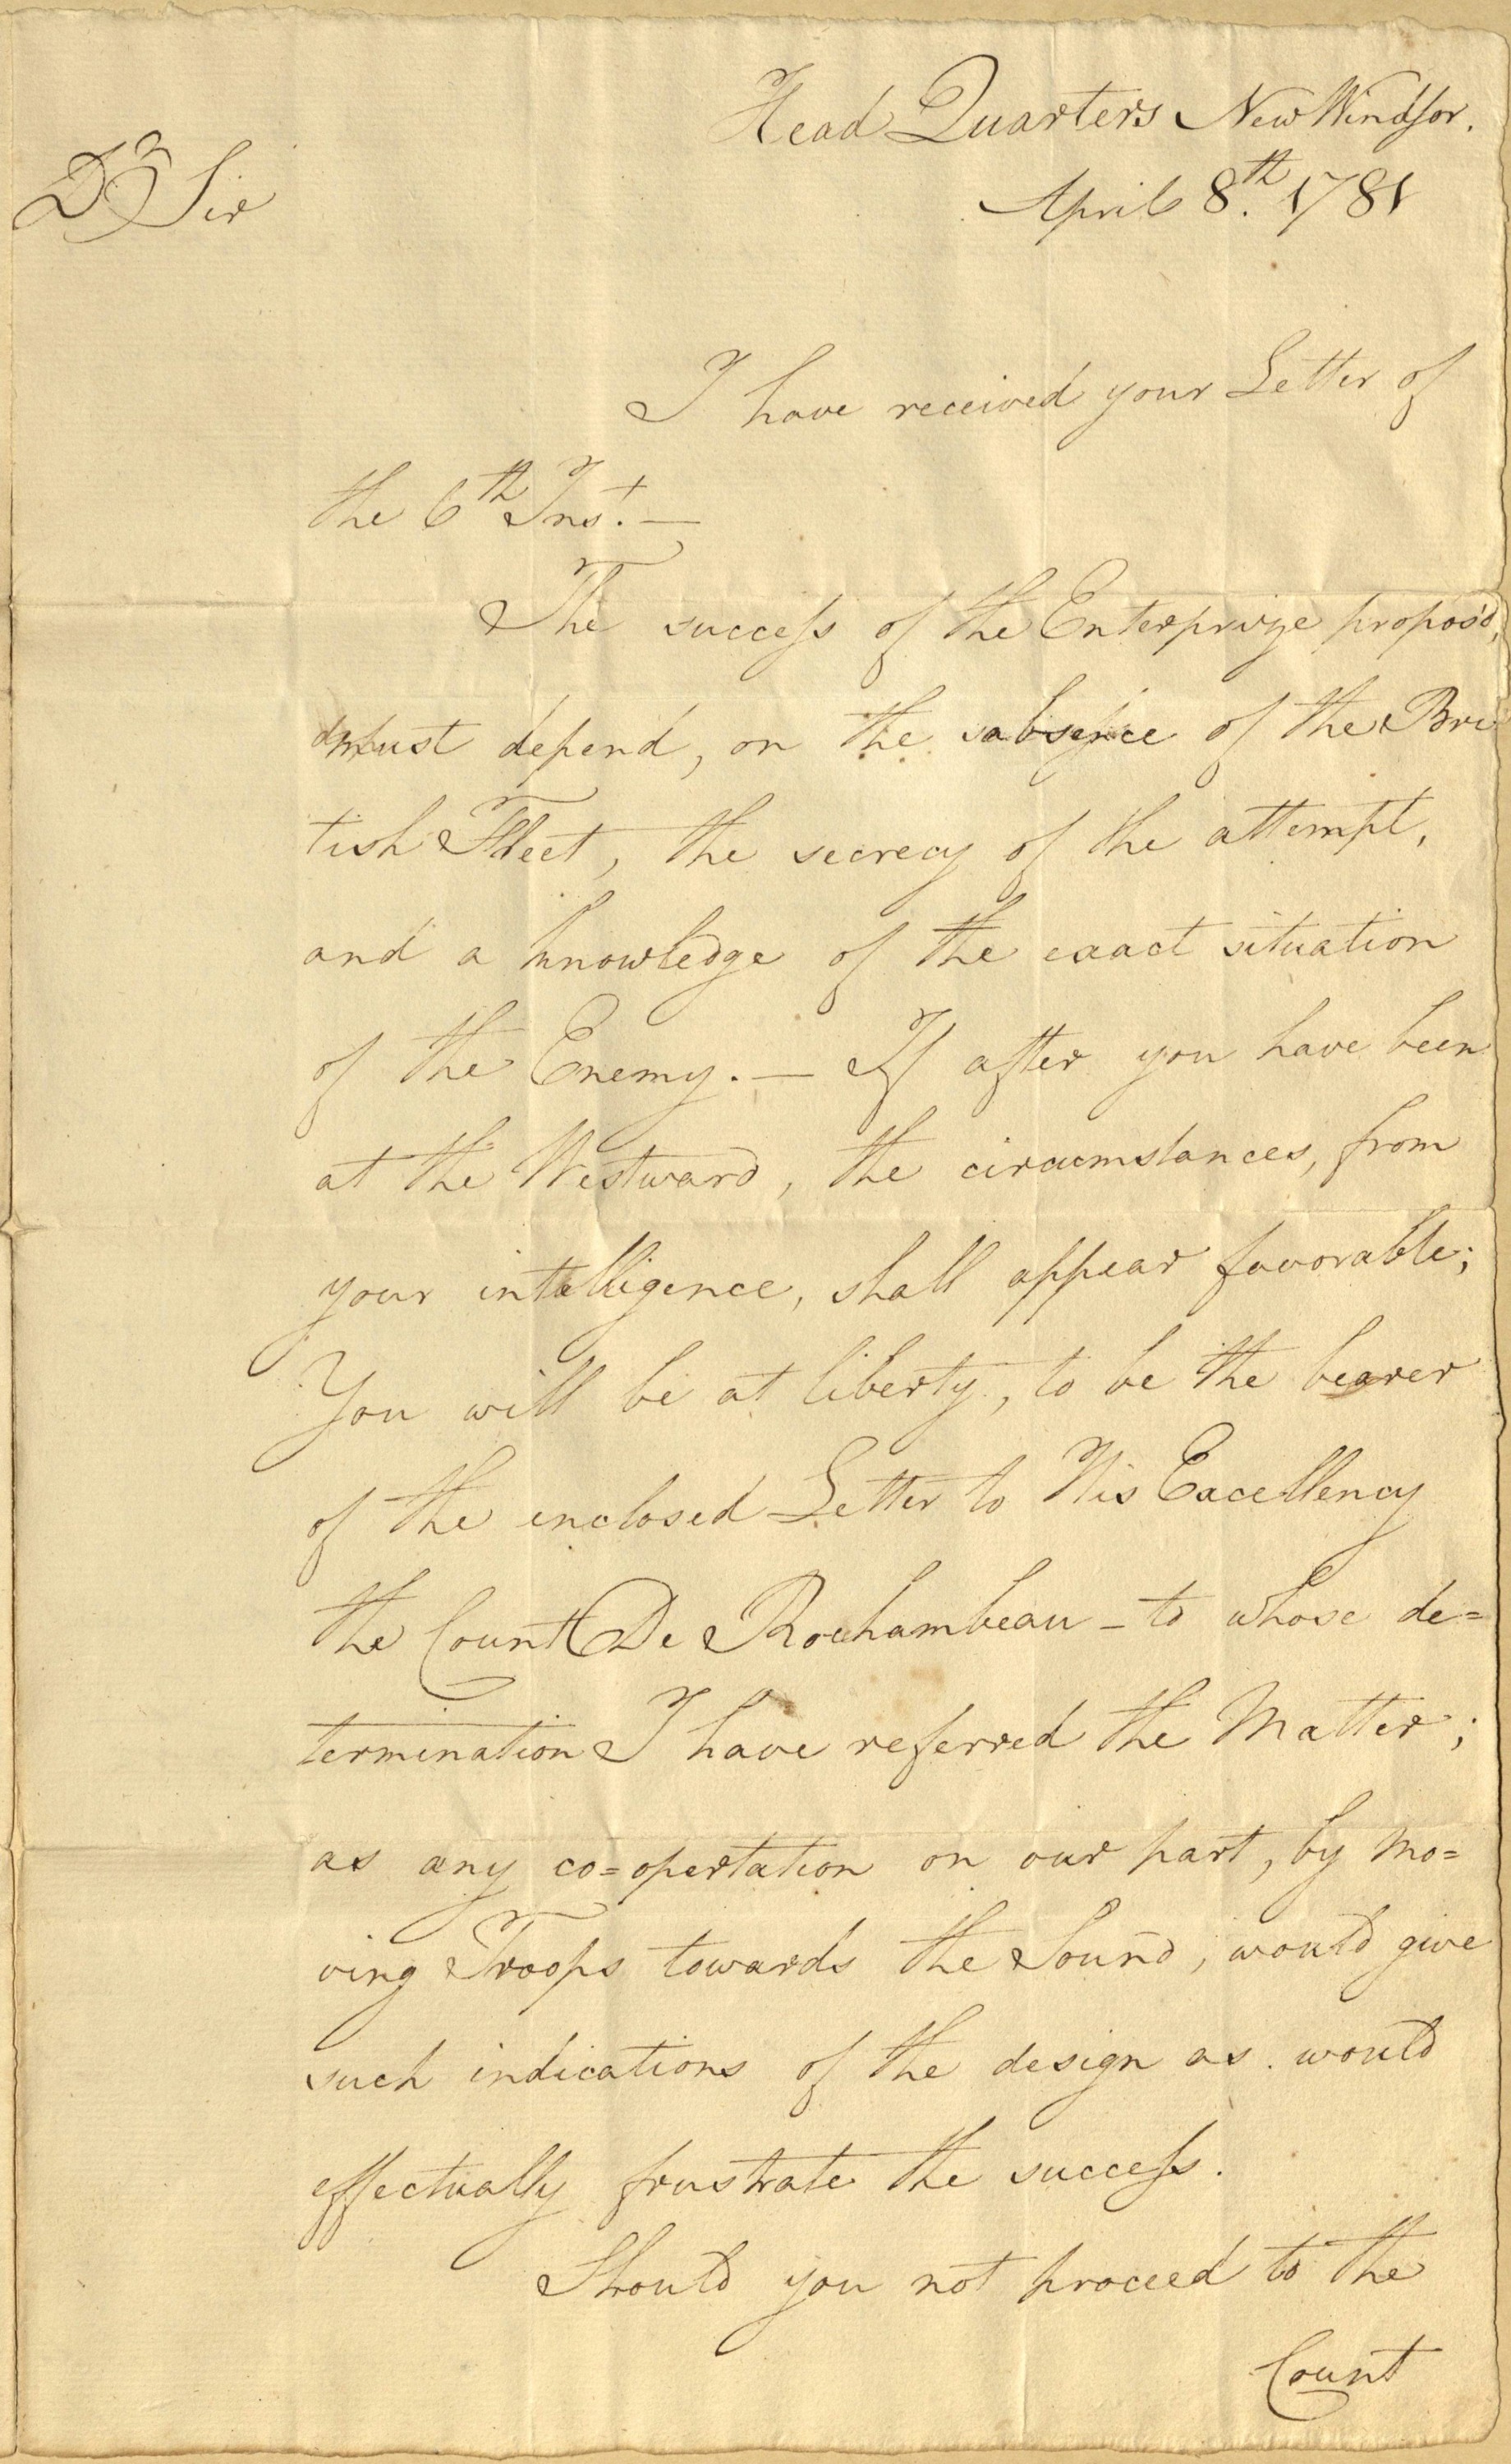 Head Quarters New Windsor.
April 8th. 1781
Dr Sir
I have received your Letter of
the 6th Inst. —
The success of the Enterprize propos'd,
must depend, on the absence of the Bri
tish Fleet, the secrecy of the attempt,
and a knowledge of the exact situation
of the Enemy. — If after you have been
at the Westward, the circumstances, from
your intelligence, shall appear favorable;
You will be at liberty, to be the bearer
of the enclosed Letter to His Excellency
the Count De Rochambeau – to whose de=
termination I have referred the Matter;
as any co=opertation on our part, by mo=
ving Troops towards the Sound, would give
such indications of the design as would
effectually frustrate the success.
Should you not proceed to the
Count